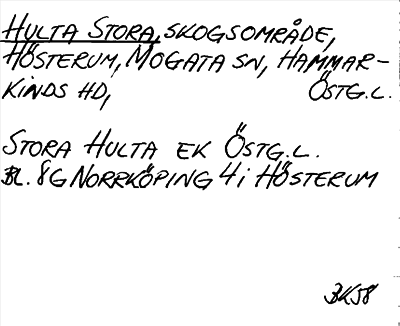 HULTA STORA, SKOGSOMRÅDE,
HÖSTERUM, MOGATA SN, HAMMAR-
KINDS HD, ÖSTG.L.
STORA HULTA EK ÖSTG.L.
BL. 8G NORRKÖPING 4i HÖSTERUM
BK58